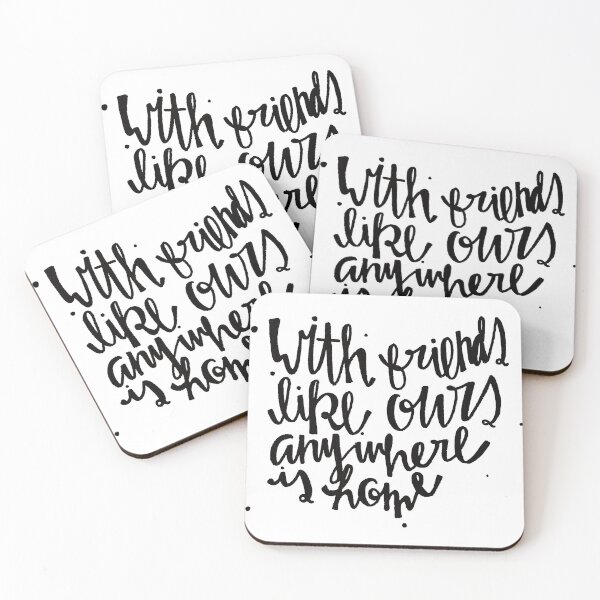 With friends
like ours
With friends
like ours
anywhere
With friends
like ours
anywhere
is home
With friends
like ours
anywhere
is home